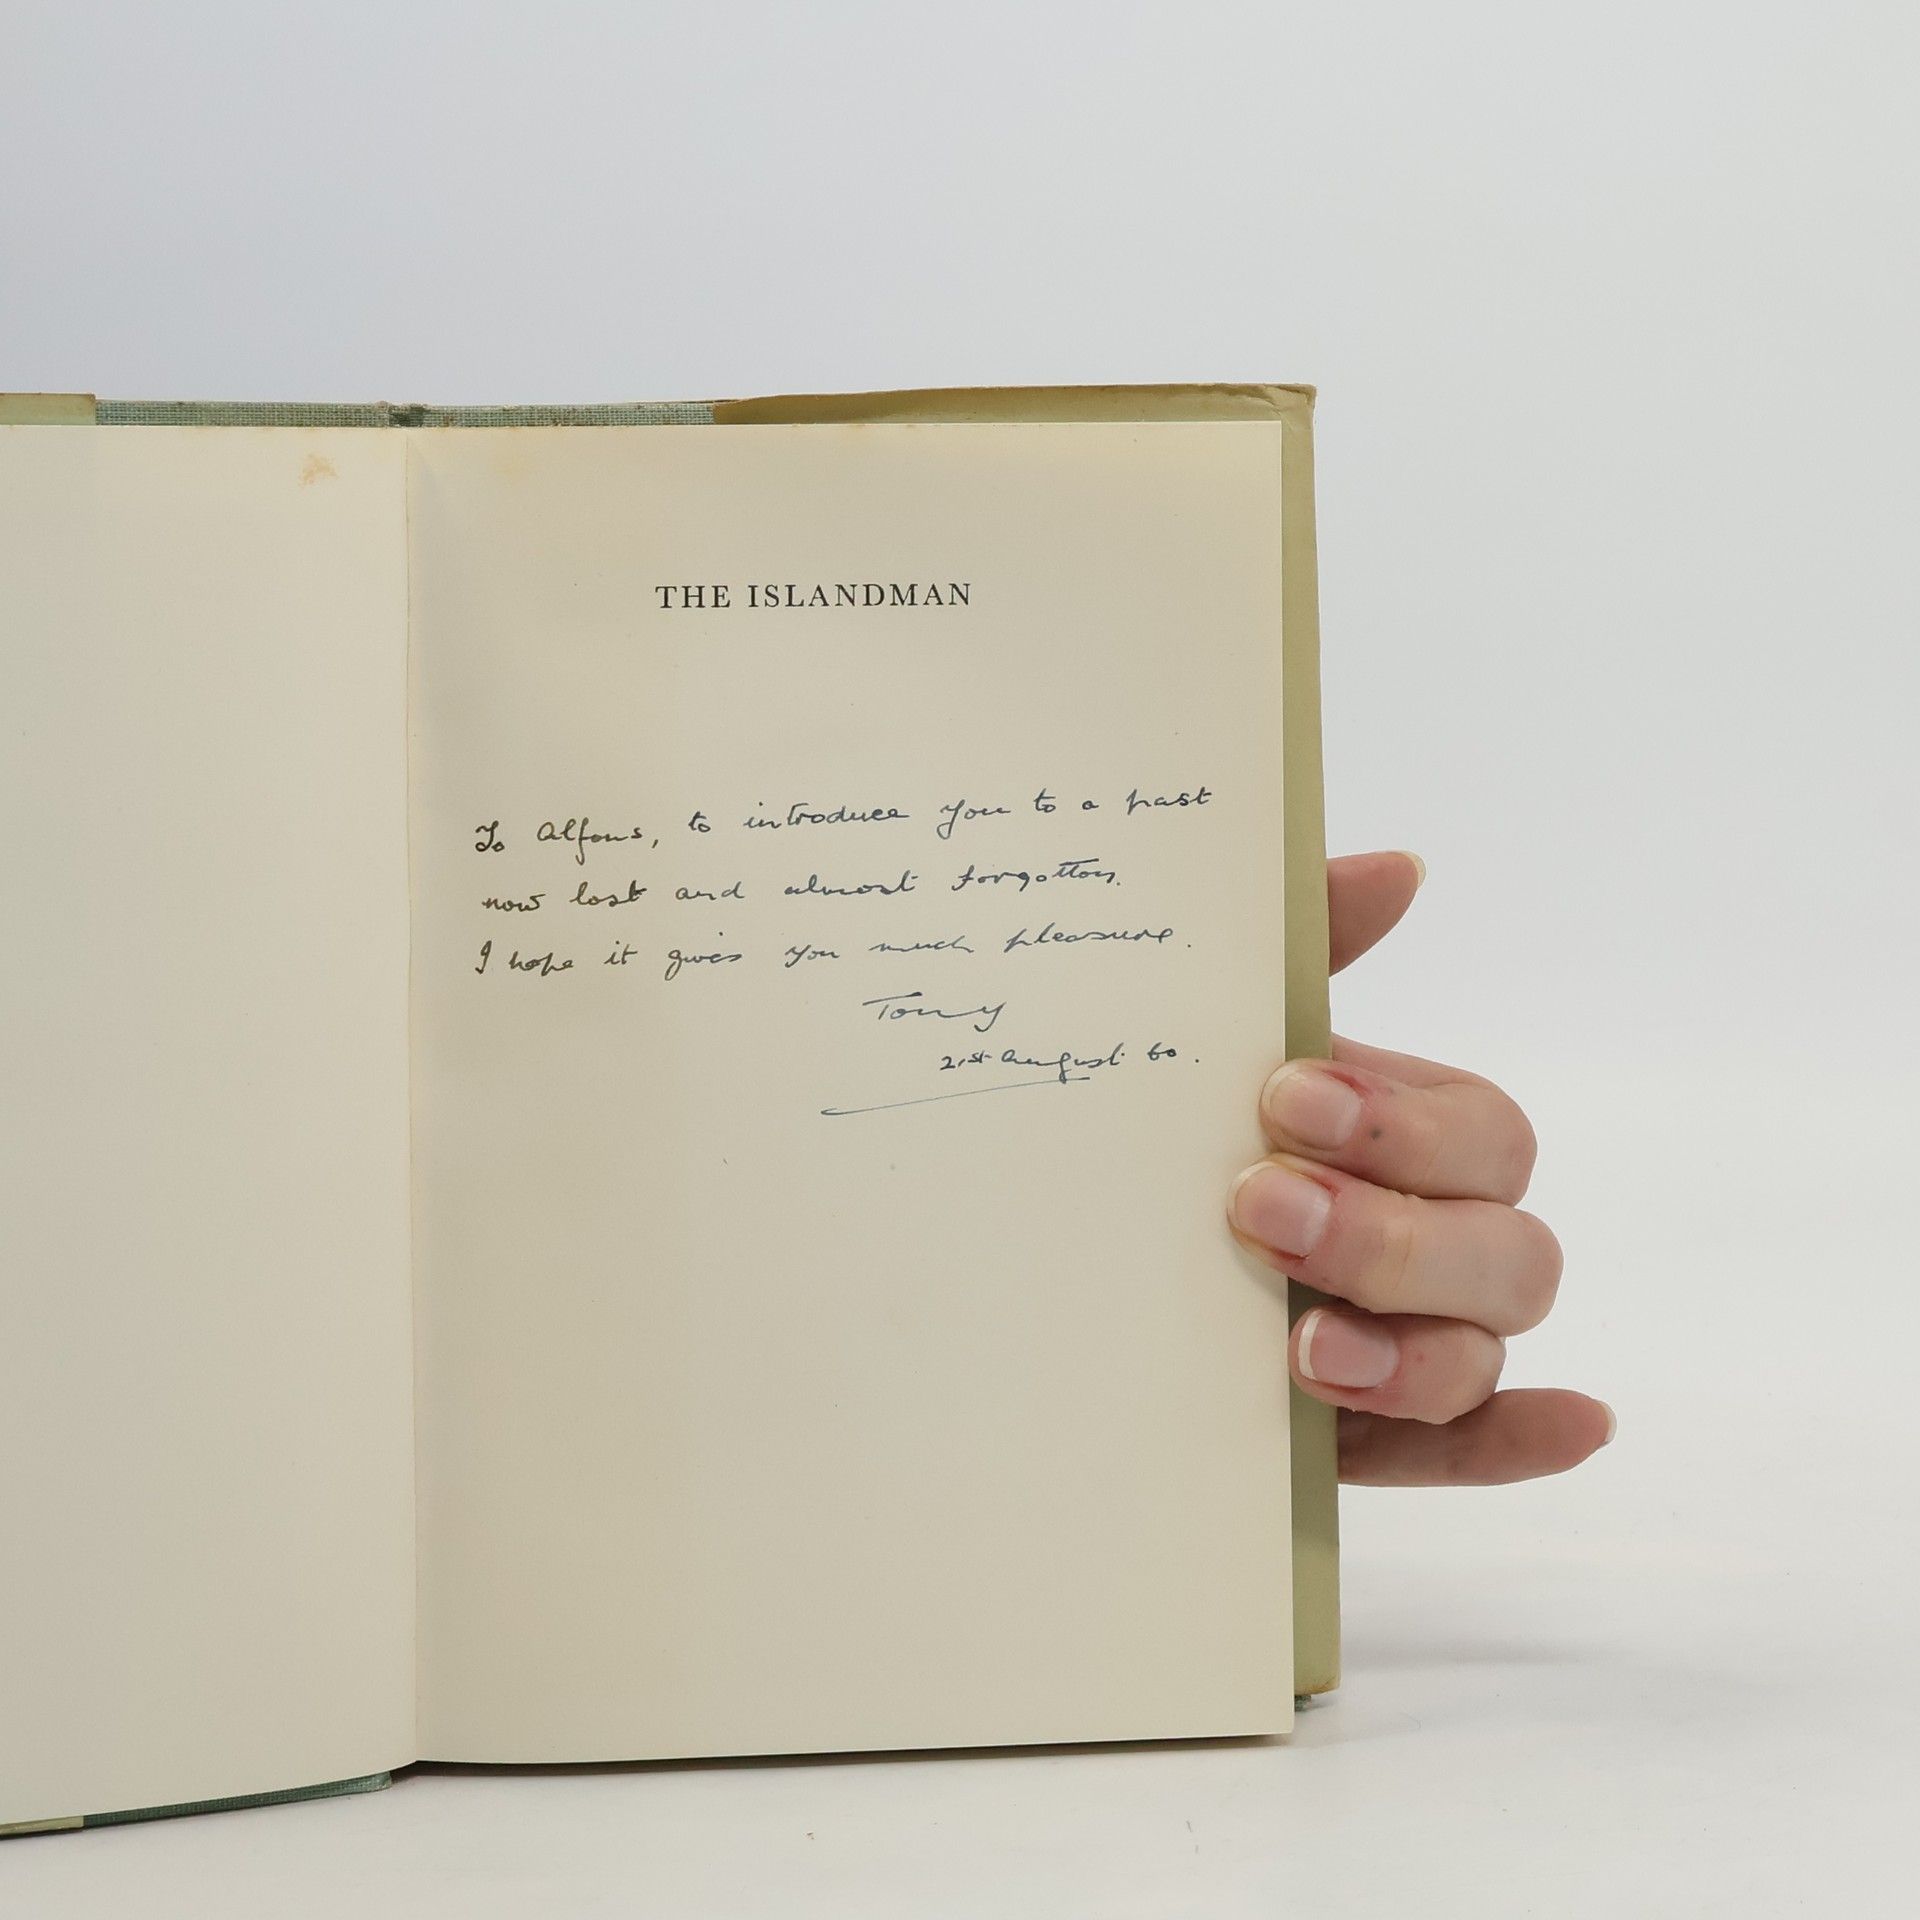 THE ISLANDMAN
To Alfons, to introduce you to a past
now lost and almost forgotten.
I hope it gives you much pleasure.
Tony
21st August 60.